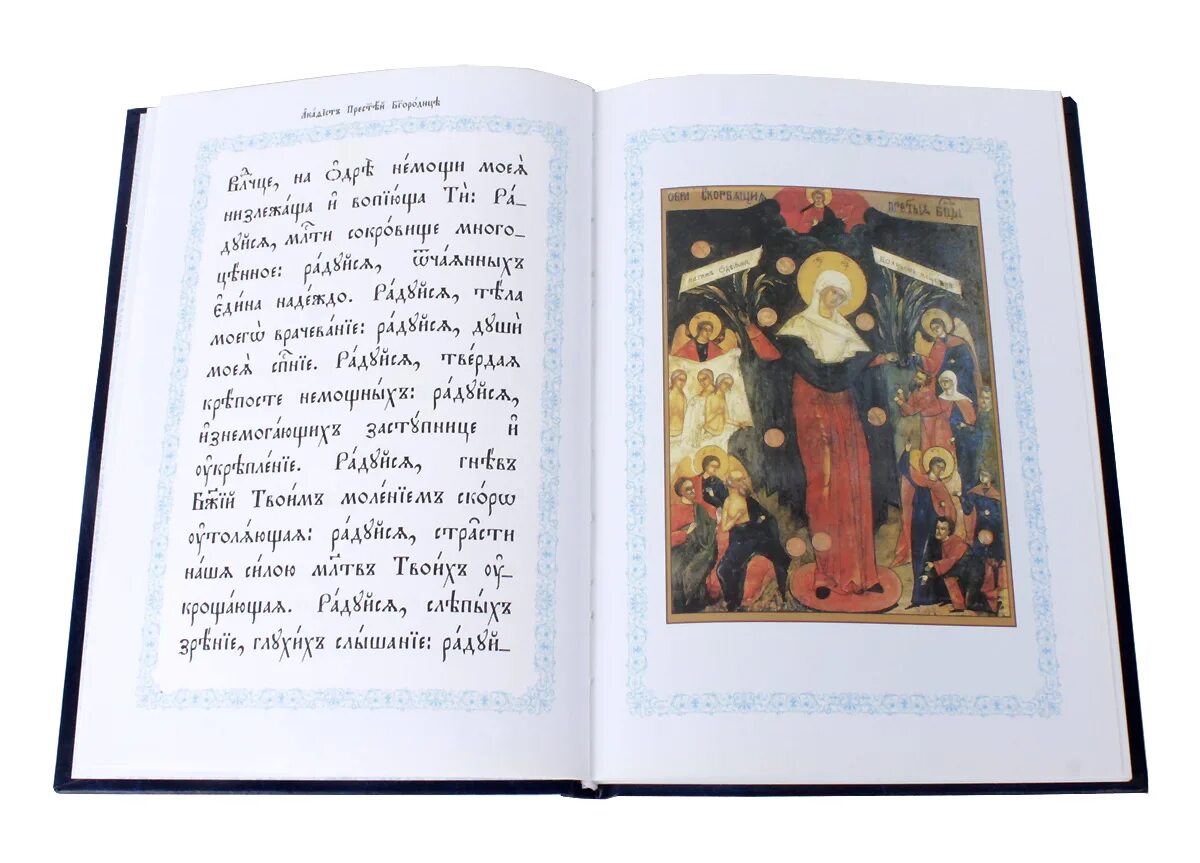 А҆ка́ѳїстъ Прест҃ѣ́й Бг҃оро́дицѣ
Влⷣчце, на ѻ҆дрѣ̀ не́мощи моеѧ̀
низлежа́ща и҆ вопїю́ща Тѝ: Ра́-
дꙋйсѧ, млⷭ҇ти сокро́вище много-
цѣ́нное: ра́дꙋйсѧ, ѿча́ѧнныхъ
є҆ди́на наде́ждо. Ра́дꙋйсѧ, тѣ́ла
моегѡ̀ врачева́нїе: ра́дꙋйсѧ, дꙋшѝ
моеѧ̀ сп҃нїе. Ра́дꙋйсѧ, тве́рдаѧ
крѣ́посте немощны́хъ: ра́дꙋйсѧ,
и҆знемога́ющихъ застꙋ́пнице и҆
ᲂу҆крѣпле́нїе. Ра́дꙋйсѧ, гнѣ́въ
Бж҃їй Твои́мъ моле́нїемъ ско́рѡ
ᲂу҆толѧ́ющаѧ: ра́дꙋйсѧ, стра̑сти
на́шѧ си́лою млⷭ҇твъ Твои́хъ ᲂу҆-
кроща́ющаѧ. Ра́дꙋйсѧ, слѣпы́хъ
зрѣ́нїе, глꙋхи́хъ слы́шанїе: ра́дꙋй-
ѡбра скорбѧщиа
прⷭ҇тыѧ бцы
нагимъ ѡдѣѧнїе
болнымъ